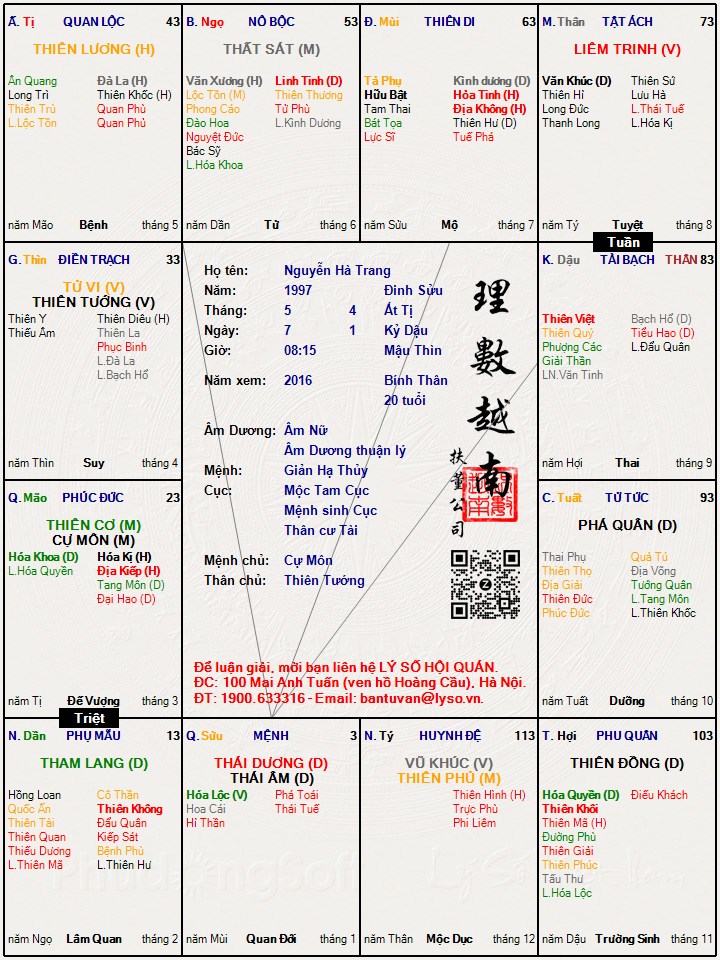 Ă. Tị QUAN LỘC 43
THIÊN LƯƠNG (H)
Ân Quang Đà La (H)
Long Trì Thiên Khốc (H)
Thiên Trù Quan Phù
L.Lộc Tồn Quan Phủ
năm Mão Bệnh tháng 5
B. Ngọ NÔ BỘC 53
THẤT SÁT (M)
Văn Xương (H) Linh Tinh (D)
Lộc Tồn (M) Thiên Thương
Phong Cáo Tử Phù
Đào Hoa L.Kình Dương
Nguyệt Đức
Bác Sỹ
L.Hóa Khoa
năm Dần Tử tháng 6
Đ. Mùi THIÊN DI 63
Tả Phụ Kình dương (D)
Hữu Bật Hỏa Tinh (H)
Tam Thai Địa Không (H)
Bát Tọa Thiên Hư (D)
Lực Sĩ Tuế Phá
năm Sửu Mộ tháng 7
M. Thân TẬT ÁCH 73
LIÊM TRINH (V)
Văn Khúc (D) Thiên Sứ
Thiên Hỉ Lưu Hà
Long Đức L.Thái Tuế
Thanh Long L.Hóa Kị
năm Tý Tuyệt tháng 8
Tuần
G. Thìn ĐIỀN TRẠCH 33
TỬ VI (V)
THIÊN TƯỚNG (V)
Thiên Y Thiên Diêu (H)
Thiếu Âm Thiên La
Phục Binh
L.Đà La
L.Bạch Hổ
năm Thìn Suy tháng 4
Họ tên: Nguyễn Hà Trang
Năm: 1997 Đinh Sửu
Tháng: 5 4 Ất Tị
Ngày: 7 1 Kỷ Dậu
Giờ: 08:15 Mậu Thìn
Năm xem: 2016 Bính Thân
20 tuổi
Âm Dương: Âm Nữ
Âm Dương thuận lý
Mệnh: Giản Hạ Thủy
Cục: Mộc Tam Cục
Mệnh sinh Cục
Thân cư Tài
Mệnh chủ: Cự Môn
Thân chủ: Thiên Tướng
理數越南
扶董公司
Để luận giải, mời bạn liên hệ LÝ SỐ HỘI QUÁN.
ĐC: 100 Mai Anh Tuấn (ven hồ Hoàng Cầu), Hà Nội.
ĐT: 1900.633316 - Email: bantuvan@lyso.vn.
K. Dậu TÀI BẠCH THÂN 83
Thiên Việt Bạch Hổ (D)
Thiên Quý Tiểu Hao (D)
Phượng Các L.Đẩu Quân
Giải Thần
LN.Văn Tinh
năm Hợi Thai tháng 9
Q. Mão PHÚC ĐỨC 23
THIÊN CƠ (M)
CỰ MÔN (M)
Hóa Khoa (D) Hóa Kị (H)
L.Hóa Quyền Địa Kiếp (H)
Tang Môn (D)
Đại Hao (D)
năm Tị Đế Vượng tháng 3
Triệt
C. Tuất TỬ TỨC 93
PHÁ QUÂN (D)
Thai Phụ Quả Tú
Thiên Thọ Địa Võng
Địa Giải Tướng Quân
Thiên Đức L.Tang Môn
Phúc Đức L.Thiên Khốc
năm Tuất Dưỡng tháng 10
N. Dần PHỤ MẪU 13
THAM LANG (D)
Hồng Loan Cô Thần
Quốc Ấn Thiên Không
Thiên Tài Đẩu Quân
Thiên Quan Kiếp Sát
Thiếu Dương Bệnh Phù
L.Thiên Mã L.Thiên Hư
năm Ngọ Lâm Quan tháng 2
Q. Sửu MỆNH 3
THÁI DƯƠNG (D)
THÁI ÂM (D)
Hóa Lộc (V) Phá Toái
Hoa Cái Thái Tuế
Hỉ Thần
năm Mùi Quan Đới tháng 1
N. Tý HUYNH ĐỆ 113
VŨ KHÚC (V)
THIÊN PHỦ (M)
Thiên Hình (H)
Trực Phù
Phi Liêm
năm Thân Mộc Dục tháng 12
T. Hợi PHU QUÂN 103
THIÊN ĐỒNG (D)
Hóa Quyền (D) Điếu Khách
Thiên Khôi
Thiên Mã (H)
Đường Phù
Thiên Giải
Thiên Phúc
Tấu Thư
L.Hóa Lộc
năm Dậu Trường Sinh tháng 11